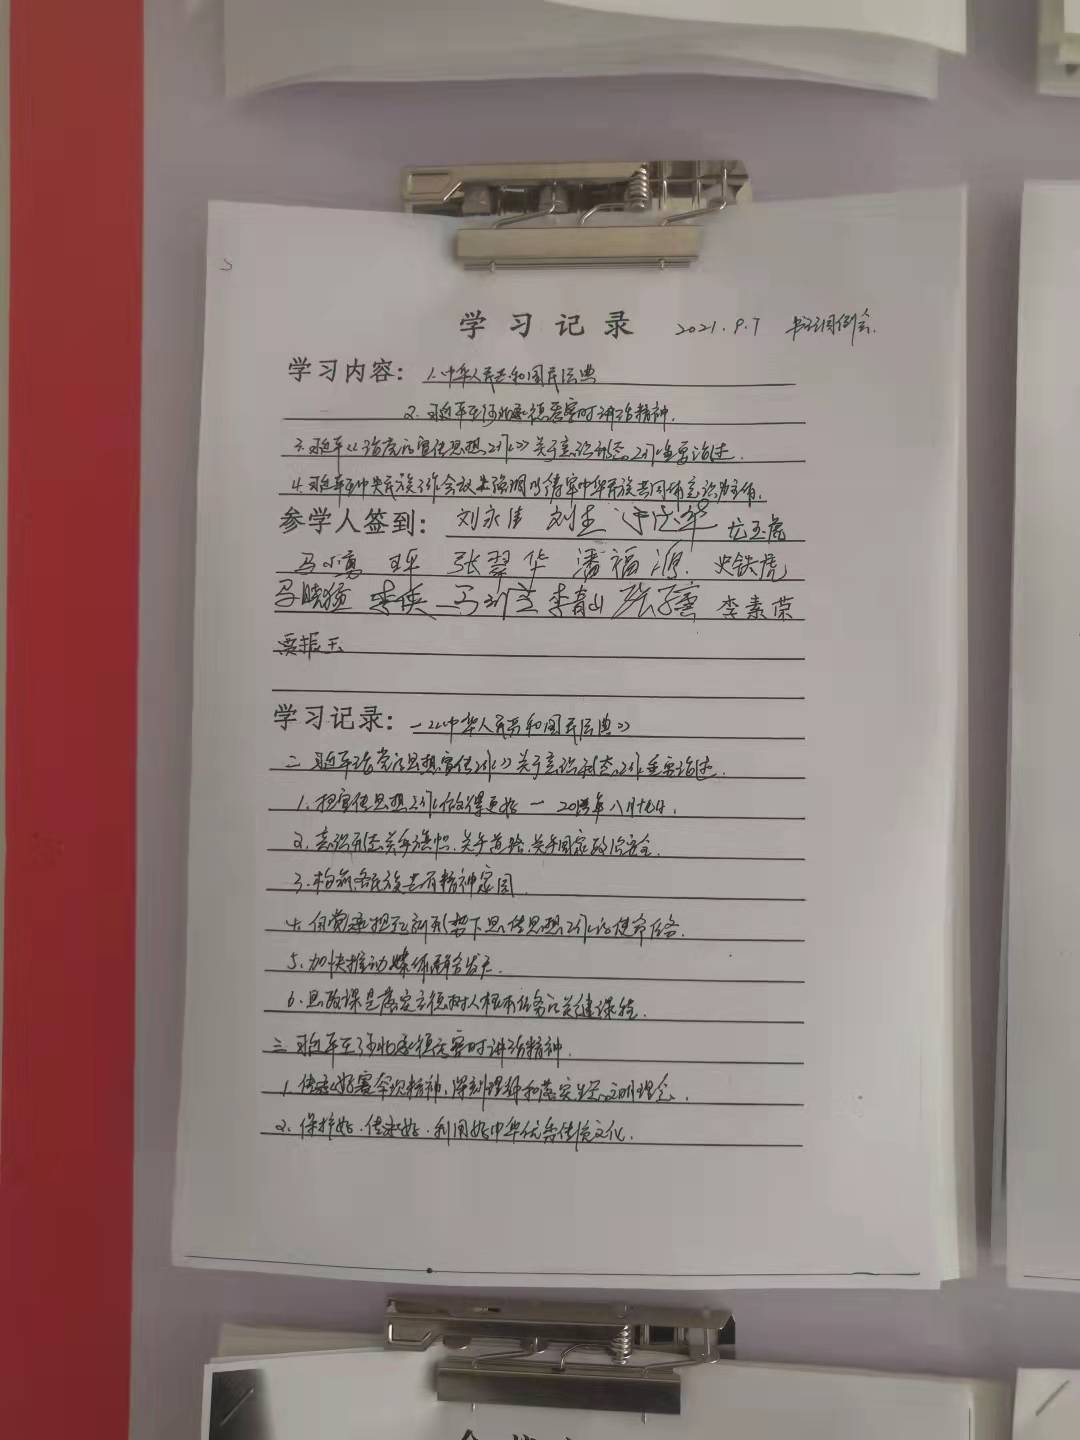 学习记录 2021.9.7
学习内容：1.中华人民共和国民法典
2.习近平在河北承德考察时讲话精神.
3.习近平《论党的宣传思想工作》关于意识形态工作重要论述.
4.习近平在中央民族工作会议上强调以铸牢中华民族共同体意识为主线.
参学人签到：刘永佳 刘志 尤玉虎
马小勇 张翠华 潘福源 史铁虎
马晓猛 李侠 李青山 李素荣
贾振玉
学习记录：一《中华人民共和国民法典》
二 习近平论党的思想宣传工作》关于意识形态工作重要论述.
1.把宣传思想工作做得更好 一 八月十九日.
2.意识形态关乎旗帜.关乎道路.关乎国家政治安全.
3.构筑各民族共有精神家园
4.自觉承担起新形势下思想工作的使命任务.
5.加快推动媒体融合发展.
6.思政课是落实立德树人根本任务的关键课程.
三 习近平在河北承德考察时讲话精神.
1.传承好塞罕坝精神,深刻理解和落实生态文明理念.
2.保护好.传承好.利用好中华优秀传统文化.